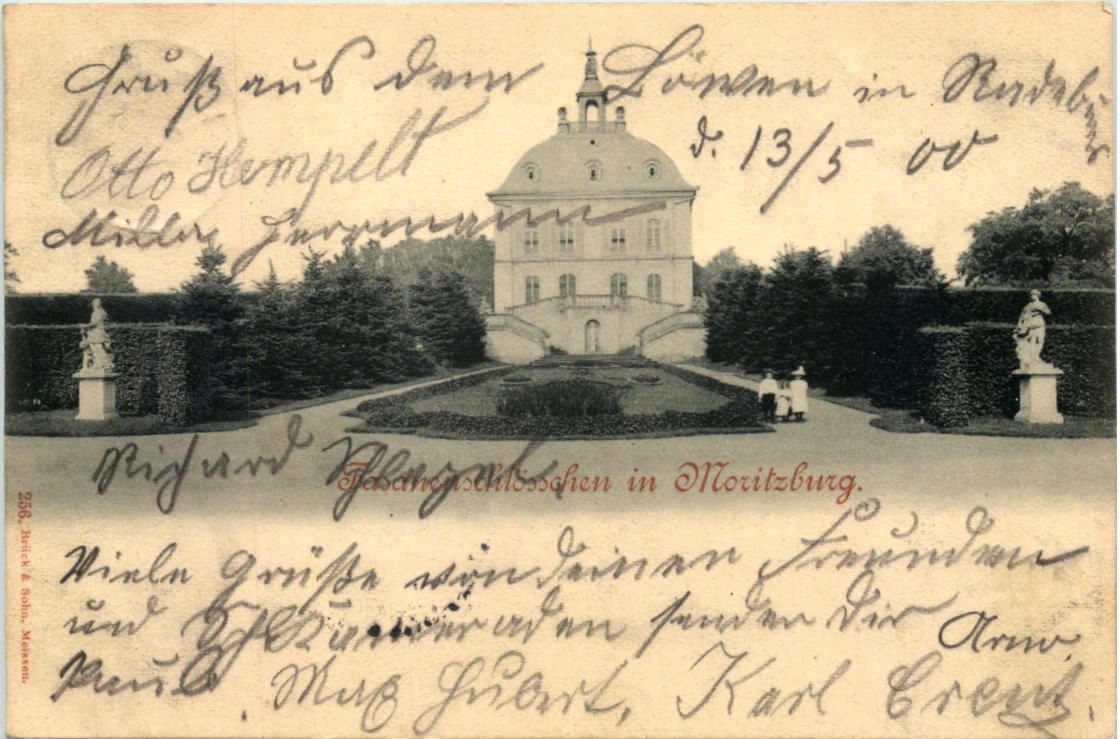 Gruß aus dem Löwen in Radeburg
d. 13/5 00
Otto Hempelt
Milla Herrmann
Richard
Fasanenschlösschen in Moritzburg.
Viele Grüße von deinen Freunden
und Kameraden sendet Dir Arno.
Paul. Max Hubert, Karl
256. Brück & Sohn, Meissen.